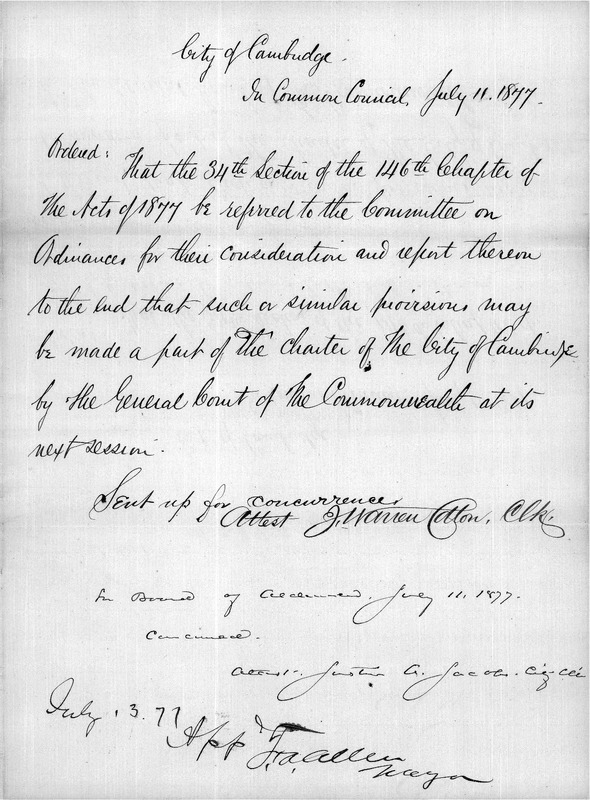 City of Cambridge.
In Common Council, July 11. 1877.
Ordered:
That the 34th Section of the 146th Chapter of
the Acts of 1877 be referred to the Committee on
Ordinances for their consideration and report thereon
to the end that such or similar provisions may
be made a part of the charter of the City of Cambridge
by the General Court of the Commonwealth at its
next session.
Sent up for concurrence
Attest J. Warren Cotton, Clk.
In Board of Aldermen. July 11, 1877.
Concurred.
Attest. Justin A. Jacobs. City Clk
July 13. 77
App F. A. Allen
Mayor